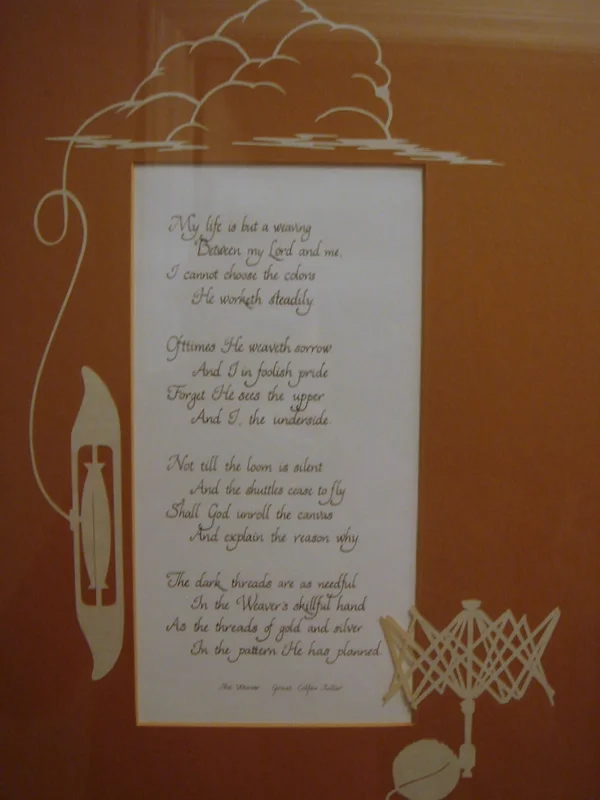 My life is but a weaving
Between my Lord and me,
I cannot choose the colors
He worketh steadily
Ofttimes He weaveth sorrow
And I in foolish pride
Forget He sees the upper
And I, the underside.
Not till the loom is silent
And the shuttles cease to fly
Shall God unroll the canvas
And explain the reason why.
The dark threads are as needful
In the Weaver's skillful hand
As the threads of gold and silver
In the pattern He has planned.
The Weaver